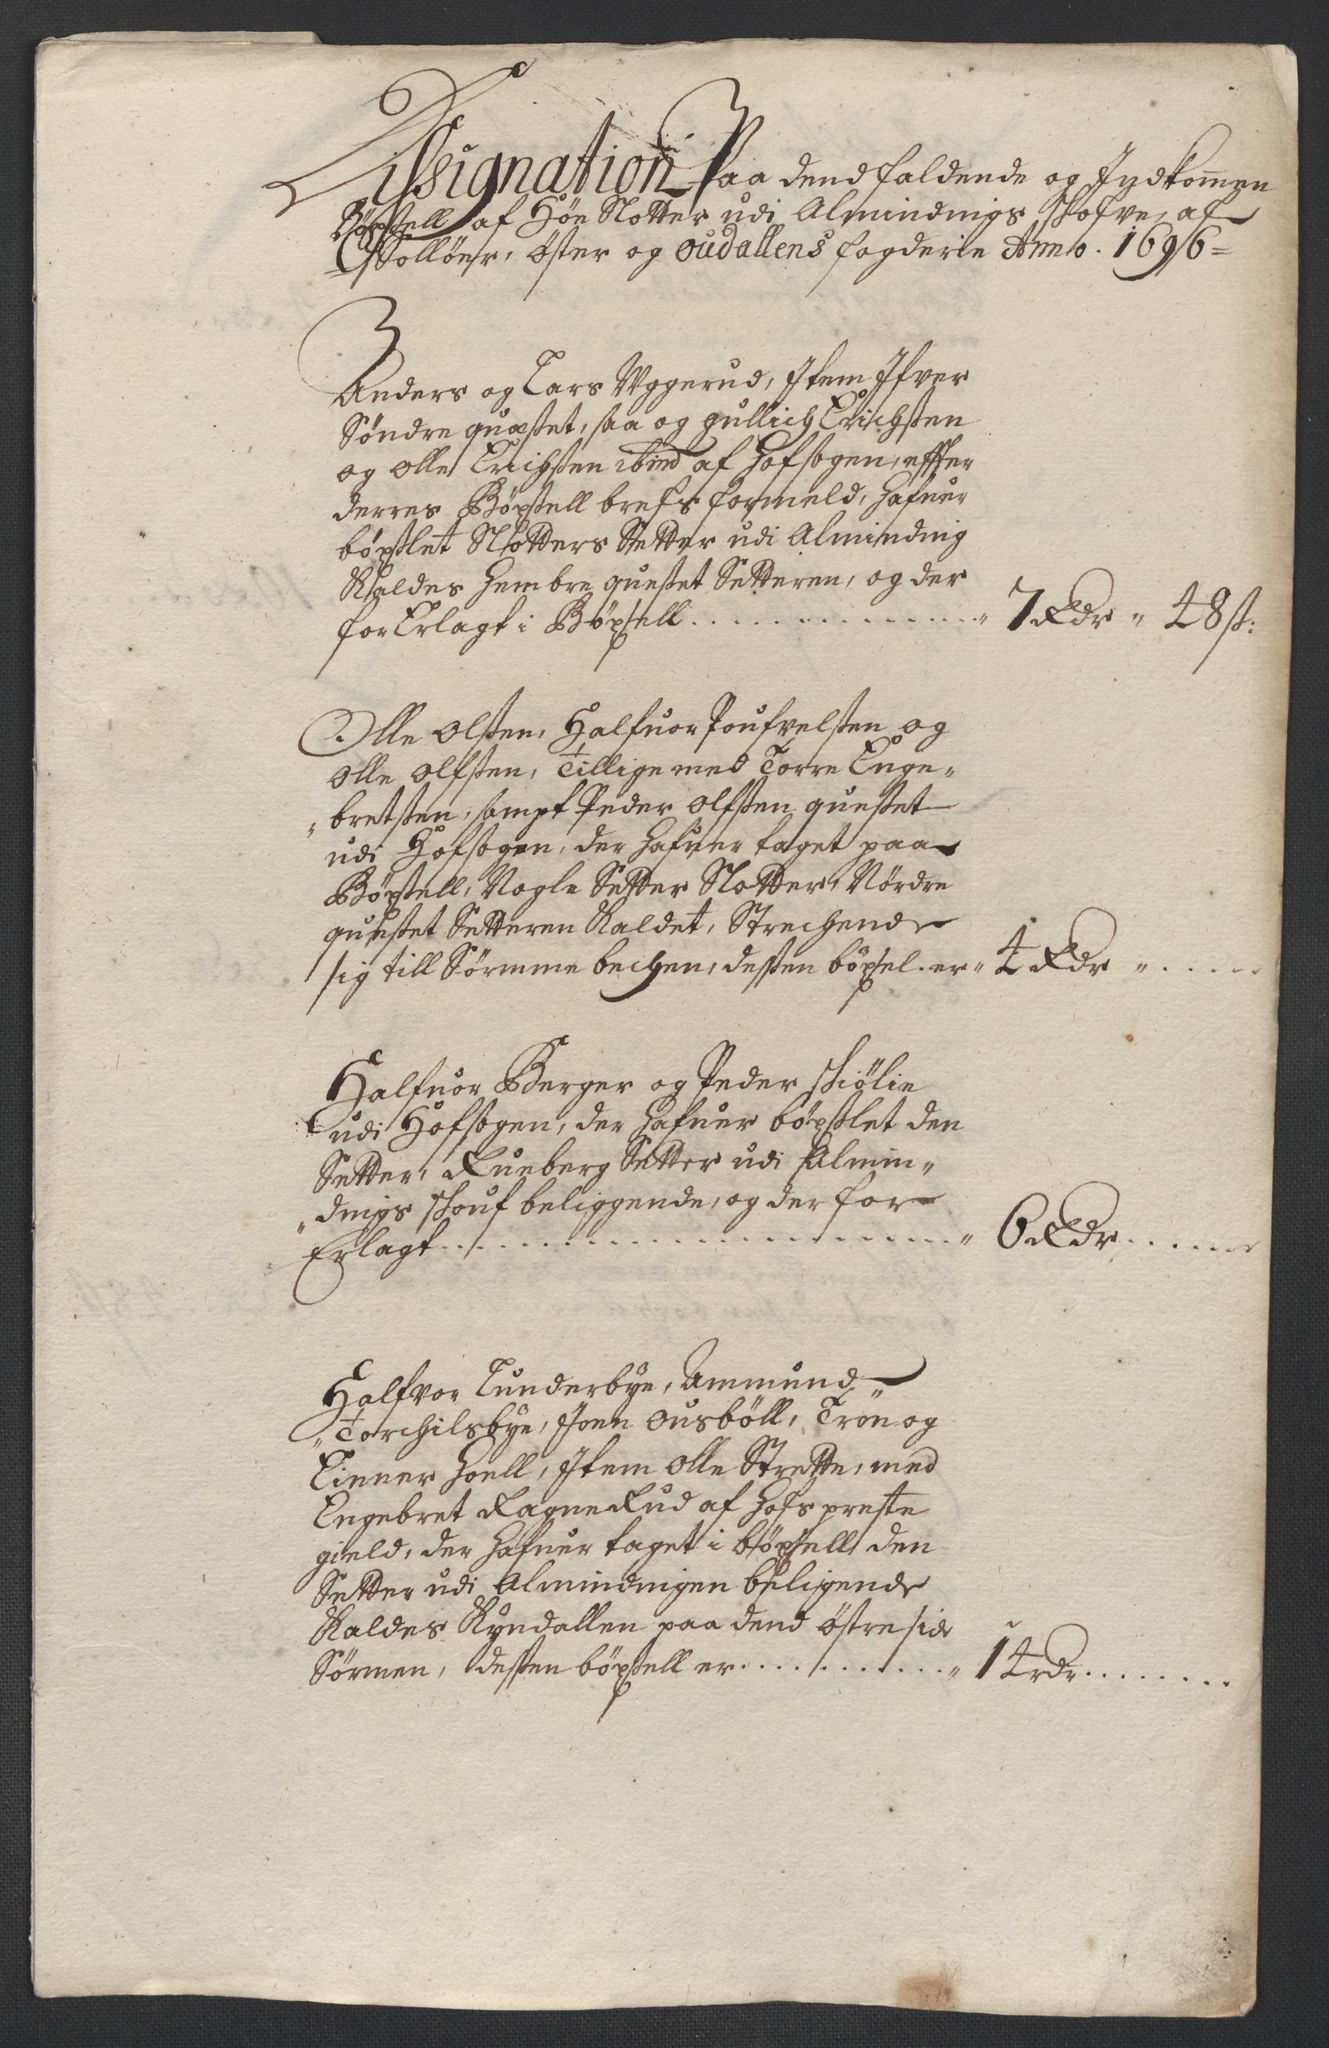 Dissignation Paa dend faldende og Indkommen
Böxsell af Höe Slotter udi Almindnigs skofve, af
Solløer, Öster og Oudallens fogderie Anno. 1696 =
Anders og Lars Uggerud, Item Ifver
Söndre quæstet, saa og gullich Erichsen
og Olle Erichsen ibid af Hofsogen, effter
derres Böxsell brefs formeld, hafuer
böxslet Slotters Setter udi Alminding
Kaldes Hembre questet Setteren, og der
for Erlagt i Böxsell . . . . . . . . . . " 7 Rdr " 48 s:
Olle Olsen, Halfuor Poufvelsen og
Olle Olfsen, Tillige med Torre Enge-
bretsen, sampt Peder Olfsen questet
udi Hofsogen, der hafuer taget paa
Böxsell, Nogle Setter Slotter, Nördre
questet Setteren Kaldet, Strechende
sig till Sörmme bechen, dessen böxsel er " 4 Rdr " . . . . .
Halfuor Berger og Peder skiölie
udi Hofsogen, der hafuer böxslet den
Setter, Rueberg Setter udi Almin-
dnigs skouf beliggende, og der for
Erlagt . . . . . . . . . . " 6 Rdr . . . . .
Halfvor Lunderbye, Ammund
Torchilsbye, Joen Ousböll, Tron og
Einner Hoell, Item Olle Strette, med
Engebret RagneRud af Hofs preste
gield, der hafuer taget i böxsell den
Setter udi Almindnigen beligende
Kaldes Kyndallen paa dend östre side
Sörmen, dessen böxsell er . . . . . . . . " 14 rdr . . . . . .